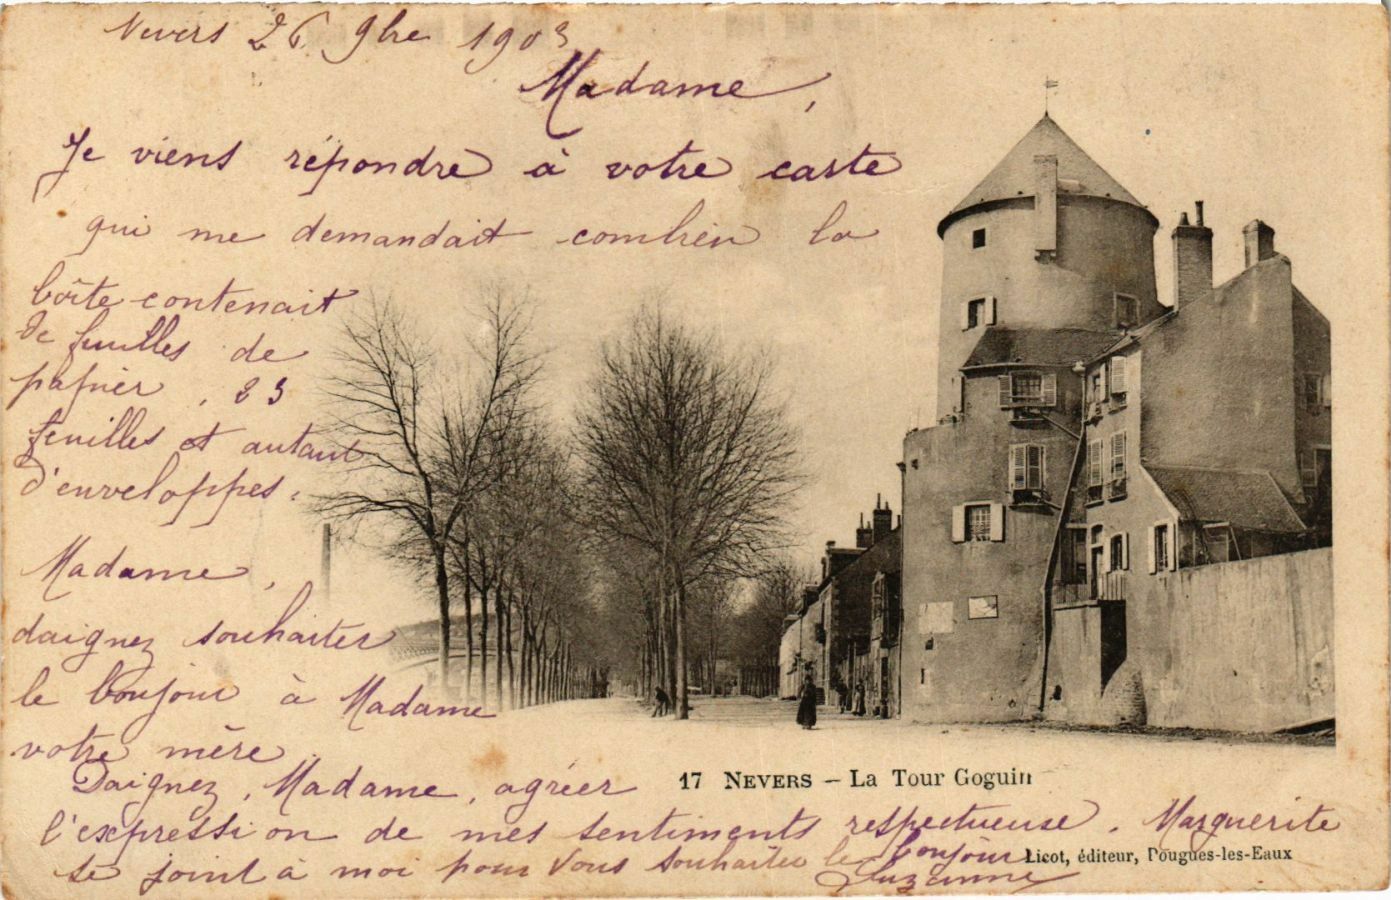 Nevers 26 9bre 1903
Madame,
Je viens répondre à votre carte
qui me demandait combien la
boîte contenait
de feuilles de
papier, 25
feuilles et autant
d'enveloppes.
Madame,
daignez souhaiter
le boujour à Madame
votre mère
Daignez, Madame, agréer
l'expression de mes sentiments respectueuse. Marguerite
se joint à moi pour vous souhaiter le boujour
Suzanne
17 NEVERS – La Tour Goguin
Licot, éditeur, Pougues-les-Eaux